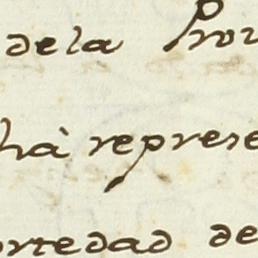 dela Prov
há represe
ortedad de